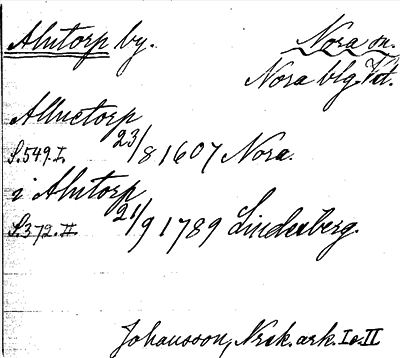 Alntorp by. Nora sn.
Nora blg. Vst.
Alluetorp
S. 549. I. 23/8 1607 Nora.
i Alntorp
S. 372. II. 21/9 1789 Lindesberg.
Johansson, Nrk. ark. I o. II